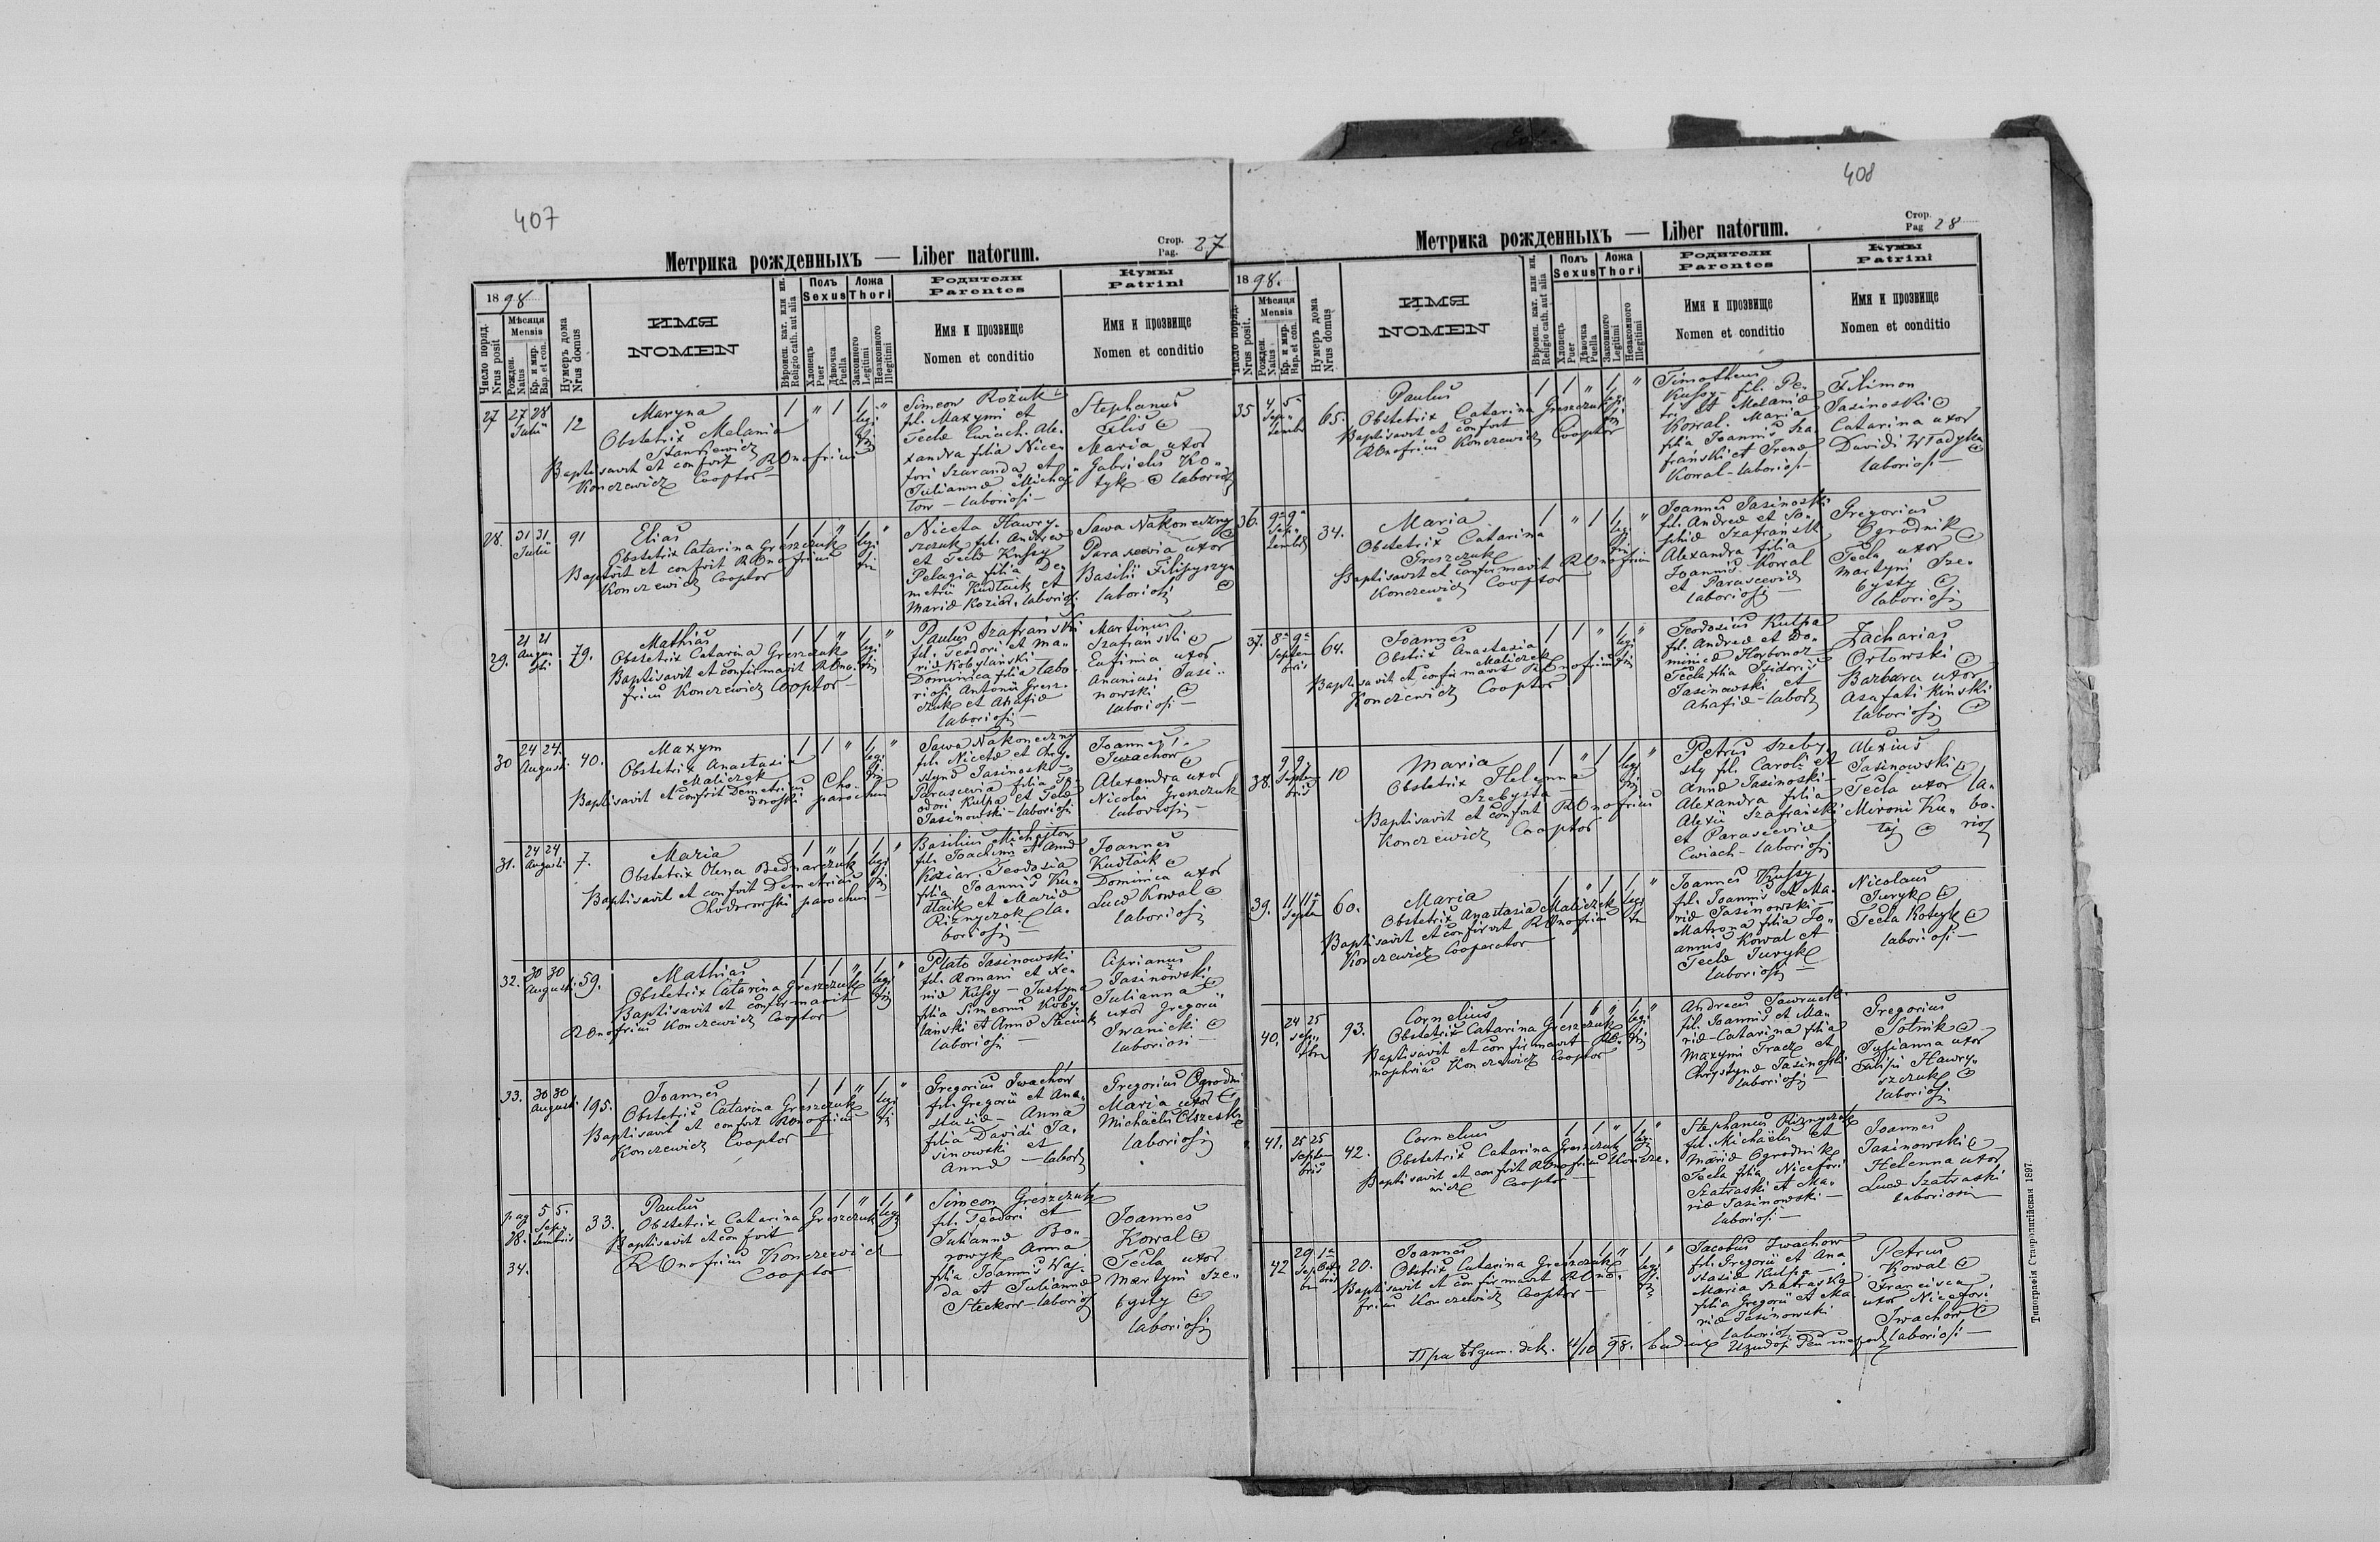 407
Метрика рожденныхъ — Liber natorum.
Стор.
Pag. 27
1898
Число поряд.
Nrus posit
Мѣсяця
Mensis
Рожден.
Natus
Кр. и мир.
Bap. et con.
Нумеръ дома
Nrus domus
ИМЯ
NOMEN
Вѣроисп. кат. или ин.
Religio cath. aut alia
Полъ
Sexus
Хлопецъ
Puer
Дѣвочка
Puella
Ложа
Thori
Законного
Legitimi
Незаконного
Illegitimi
Родители
Parentes
Имя и прозвище
Nomen et conditio
Кумы
Patrini
Имя и прозвище
Nomen et conditio
27 27 28 Julii 12
Maryna
Obstetrix Melania
Baptisavit et confirt ROnofrius
Konczewicz Cooptor
1 " 1 1 "
legi
Simeon Rożuk
fil. Maxymi et
Teclæ Cwiach. Ale-
xandra filia Nice-
fori Szaranda et
Juliannæ Michaj
low — laboriosi —
Stephanus
Filis
Maria uxor
Gabrielis Ko-
tyk laboriosi
28. 31 31 Julii 91
Elias
Obstetrix Catarina Greszczuk
Baptvit et confirt ROnofrius
Konczewicz Cooptor
1 1 " 1 "
legi
tim
Niceta Hawry-
szczuk fil. Andreæ
et Teclæ Kussy
Pelagia filia De-
metrii Kudłaik et
Mariæ Koziar. laboriosi
Sawa Nakoneczny
Parascevia uxor
Basilii Filipyszyn
laboriosi
29. 21 21 Augusti 79.
Mathias
Obstetrix Catarina Greszczuk
Baptisavit et confirmavit ROno-
frius Konczewicz Cooptor —
1 1 " 1 "
legi
tim
Paulus Szafrański
fil. Teodori et Ma-
riæ Kobylański
Dominica filia labo-
riosi Antonii Gresz-
czuk et Ahafiæ
laboriosi —
Martinus
Szafrański
Eufimia uxor
Ananiasi Jasi-
nowski
laboriosi —
30 24 24. Augusti 40.
Maxym
Obstetrix Anastasia
Maliczek
Baptisavit et confirt Demetrius Cho-
dorowski parochus
1 1 " 1 "
legi
tim
Sawa Nakoneczny
fil. Nicetæ et Chry-
stynæ Jasinoski
Parascevia filia Te-
odori Kulpa et Teclæ
Jasinowski — laboriosi
Joannes
Iwachow
Alexandra uxor
Nicolai Greszczuk
laboriosi —
31. 24 24 Augusti 7.
Maria
Obstetrix Olena Bednarczuk
Baptisavit et confirt Demetrius
Chodorowski parochus —
1 " 1 1 "
legi
tim
Basilius Michajlow
fil. Joachimi et Annæ
Koziar. Teodosia
filia Joannis Ku-
dłaik et Mariæ
Riznyczok la-
boriosi —
Joannes
Kudłaik
Dominica uxor
Lucæ Kowal
laboriosi
32. 30 30 Augusti 59.
Mathias
Obstetrix Catarina Greszczuk
Baptisavit et confirmavit
ROnofrius Konczewicz Cooptor
1 1 " 1 "
legi
tim
Plato Jasinowski
fil. Romani et Xe-
niæ Kussy — Justyna
filia Simeonis Koby-
lański et Annæ Steciuk
laboriosi —
Ciprianus
Jasinowski
Julianna
uxor Gregorii
Iwanicki
laboriosi —
33. 30 30 Augusti 195.
Joannes
Obstetrix Catarina Greszczuk
Baptisavit et confirt ROnofrius
Konczewicz Cooptor
1 1 " 1 "
legi
tim
Gregorius Iwachów
fil. Gregorii et Ana-
stasiæ — Anna
filia Davidi Ja-
sinowski et
Annæ — labor
Gregorius Ogrodni
Maria uxor
Michäelis Olszeski
laboriosi
p. ag 28. 34. 5 5. Septembris 33.
Paulus
Obstetrix Catarina Greszczuk
Baptisavit et confirt
ROnofrius Konczewicz
Cooptor
1 1 " 1 "
legi
Simeon Greszczuk
fil. Teodori et
Juliannæ Bo-
rowyk Anna
filia Joannis Waj-
da et Juliannæ
Steckow — laboriosi
Joannes
Kowal
Tecla uxor
Martyni Sze-
bysty
laboriosi
408
Метрика рожденныхъ — Liber natorum.
Стор.
Pag 28
1898.
Число поряд.
Nrus posit.
Мѣсяця
Mensis
Рожден.
Natus
Кр. и мир.
Bap. et con.
Нумеръ дома
Nrus domus
ИМЯ
NOMEN
Вѣроисп. кат. или ин.
Religio cath. aut alia
Полъ
Sexus
Хлопецъ
Puer
Дѣвочка
Puella
Ложа
Thori
Законного
Legitimi
Незаконного
Illegitimi
Родители
Parentes
Имя и прозвище
Nomen et conditio
Кумы
Patrini
Имя и прозвище
Nomen et conditio
35 4 5 Septembr 65.
Paulus
Obstetrix Catarina Greszczuk
Baptisavit et confirt
ROnofrius Konczewicz Cooptor
1 1 " 1 "
legi
tim
Timotheus
Kussy — fil. Pe-
tri et Melaniæ
Kowal. Maria
filia Joannis Sza-
frański et Irenæ
Kowal — laboriosi —
Filimon
Jasinoski
Catarina uxor
Davidi Władyka
laboriosi —
36. 9 9 Septembr 34.
Maria
Obstetrix Catarina
Greszczuk
Baptisavit et confirmavit ROnofrius
Konczewicz Cooptor
1 " 1 1 "
legi
tim
Joannes Jasinoski
fil. Andreæ et So-
phiæ Szafrański
Alexandra filia
Joannis Kowal
et Parasceviæ
laboriosi —
Gregorius
Ogrodnik
Tecla uxor
Martyni Sze-
bysty
laboriosi
37. 8 9 Septembris 64.
Joannes
Obstrix Anastasia
Maliczek
Baptisavit et confirmavit ROnofrius
Konczewicz Cooptor
1 1 " 1 "
legi
tim
Teodosius Kulpa
fil. Andreæ et Do-
minicæ Horbonoz
Tecla filia Isidorii
Jasinowski et
Ahafiæ — labor
Zacharias
Orłowski
Barbara uxor
Asafati Kinski
laboriosi
38. 9 9 Septembris 10
Maria
Obstetrix Helenna
Szebysta —
Baptisavit et confirt ROnofrius
Konczewicz Cooptor
1 " 1 1 "
legi
tim
Petrus Szeby-
sty fil. Caroli et
Annæ Jasinoski —
Alexandra filia
Alexii Szafrański
et Parasceviæ
Cwiach — laboriosi
Alexius
Jasinowski
Tecla uxor la-
Mironi Ku- bo-
taj riosi
39. 11 11 Septe 60.
Maria
Obstetrix Anastasia Maliczek
Baptisavit et confirvit ROnofrius
Konczewicz Cooperator
1 " 1 1 "
legi
tim
Joannes Kussy
fil. Joannis et Ma-
riæ Jasinowski —
Matrona filia Jo-
annis Kowal et
Teclæ Juryk
laboriosi —
Nicolaus
Juryk
Tecla Kotyk
laboriosi —
40. 24 25 Septbr 93.
Cornelius
Obstetrix Catarina Greszczuk
Baptisavit et confirmavit RO-
nophrius Konczewicz Cooptor
1 1 " 1 "
legi
tim
Andreas Sawruck
fil. Joannis et Ma-
riæ — Catarina filia
Maxymi Tracz et
Chrystynæ Jasinoski
laboriosi —
Gregorius
Sotnik
Julianna uxor
Hawry-
szczuk
laboriosi
41. 25 25 Septembris 42.
Cornelius
Obstetrix Catarina Greszczuk
Baptisavit et confirt ROnofrius Koncze-
wicz Cooptor —
1 1 " 1 "
legi
tim
Stephanus Riznyczok
fil. Michäelis et
Mariæ Ogrodnik
Tecla filia Nicefori
Szatraski et Ma-
riæ Jasinowski —
laboriosi —
Joannes
Jasinowski
Helenna uxor
Lucæ Szatraski
laboriosi
42 29 Septbr 1 Octobris 20.
Joannes
Obstetrix Catarina Greszczuk
Baptisavit et confirmavit ROno-
frius Konczewicz Cooptor —
1 1 " 1 "
legi
tim
Jacobus Iwachow
fil. Gregorii et Ana
stasiæ Kulpa —
Maria Szatraska
filia Gregorii et Ma
riæ Jasinowski
laboriosi
Petrus
Kowal
Francisca
uxor Nicefori
Iwachow
laboriosi —
При dek. 11/10 98.
Типографія Ставропигійская 1897.